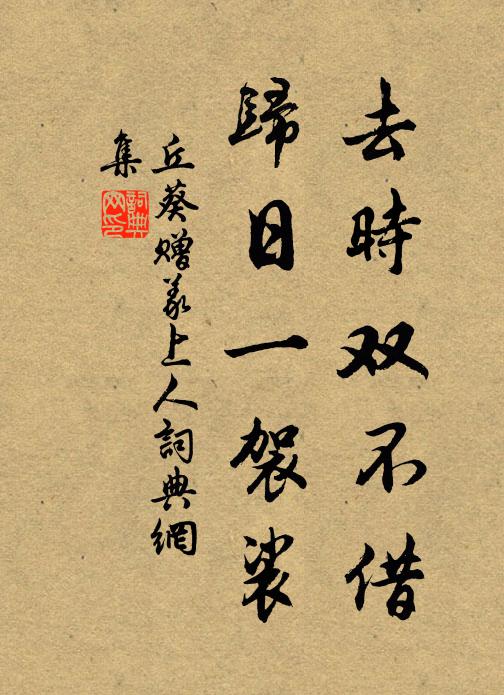 去時双不借
歸日一袈裟
丘葵贈義上人詞典網
集
詞典網印